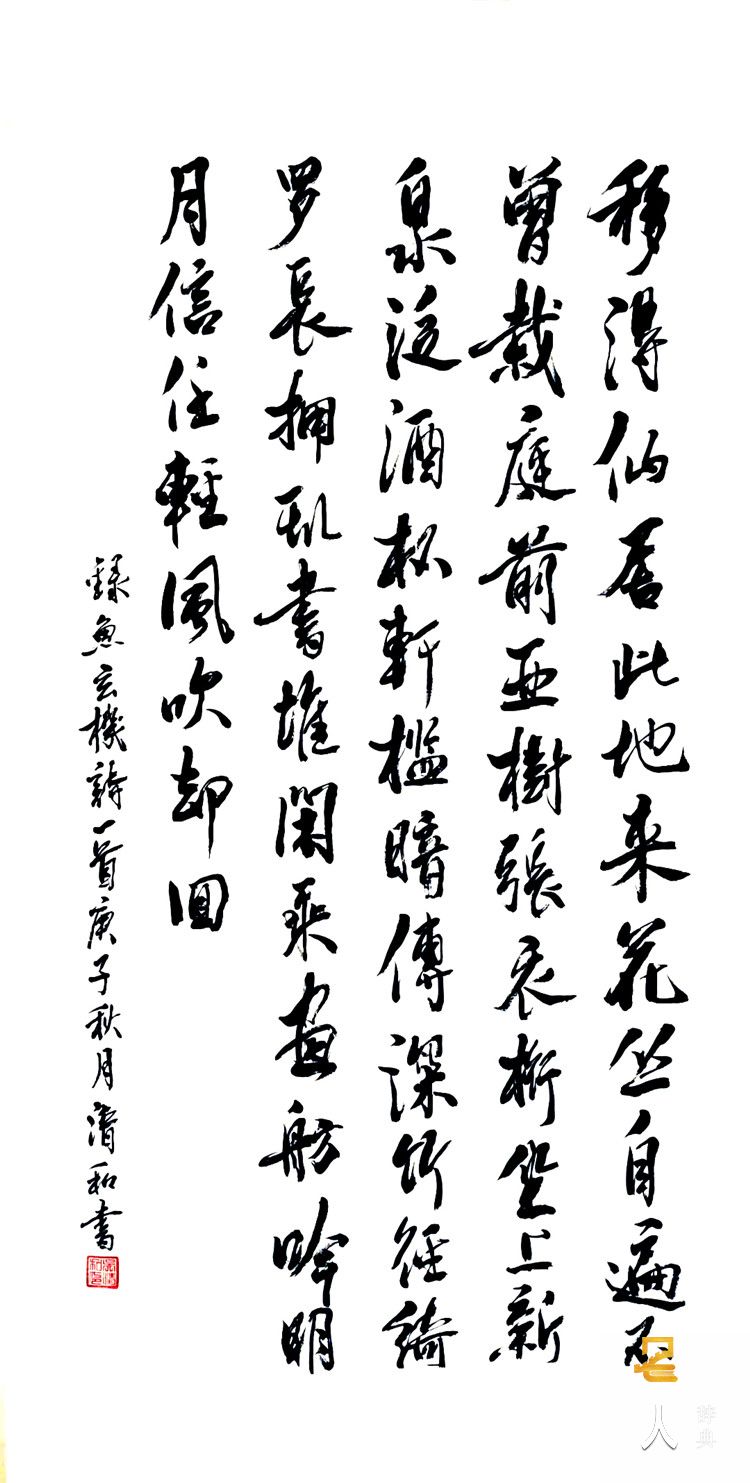 移得仙居此地来花丛自遍不
曾栽庭前亚樹張衣桁坐上新
泉泛酒杯軒槛暗傳深竹徑綺
罗長拥乱書堆閑乘画舫吟明
月信任輕風吹却回
録魚玄機詩一首庚子秋月清和書
名人
辞典